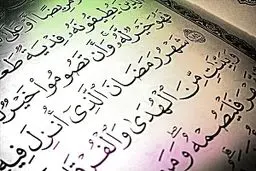 مَّرِيضًا أَوْ عَلَىٰ
يُطِيقُونَهُ فِدْيَةٌ طَعَا
خَيْرٌ لَّهُ وَأَن تَصُومُوا خَيْرٌ
شَهْرُ رَمَضَانَ الَّذِي أُنزِلَ فِيهِ
مِّنَ الْهُدَىٰ وَالْفُرْقَا
فَلْيَصُمْهُ وَمَن